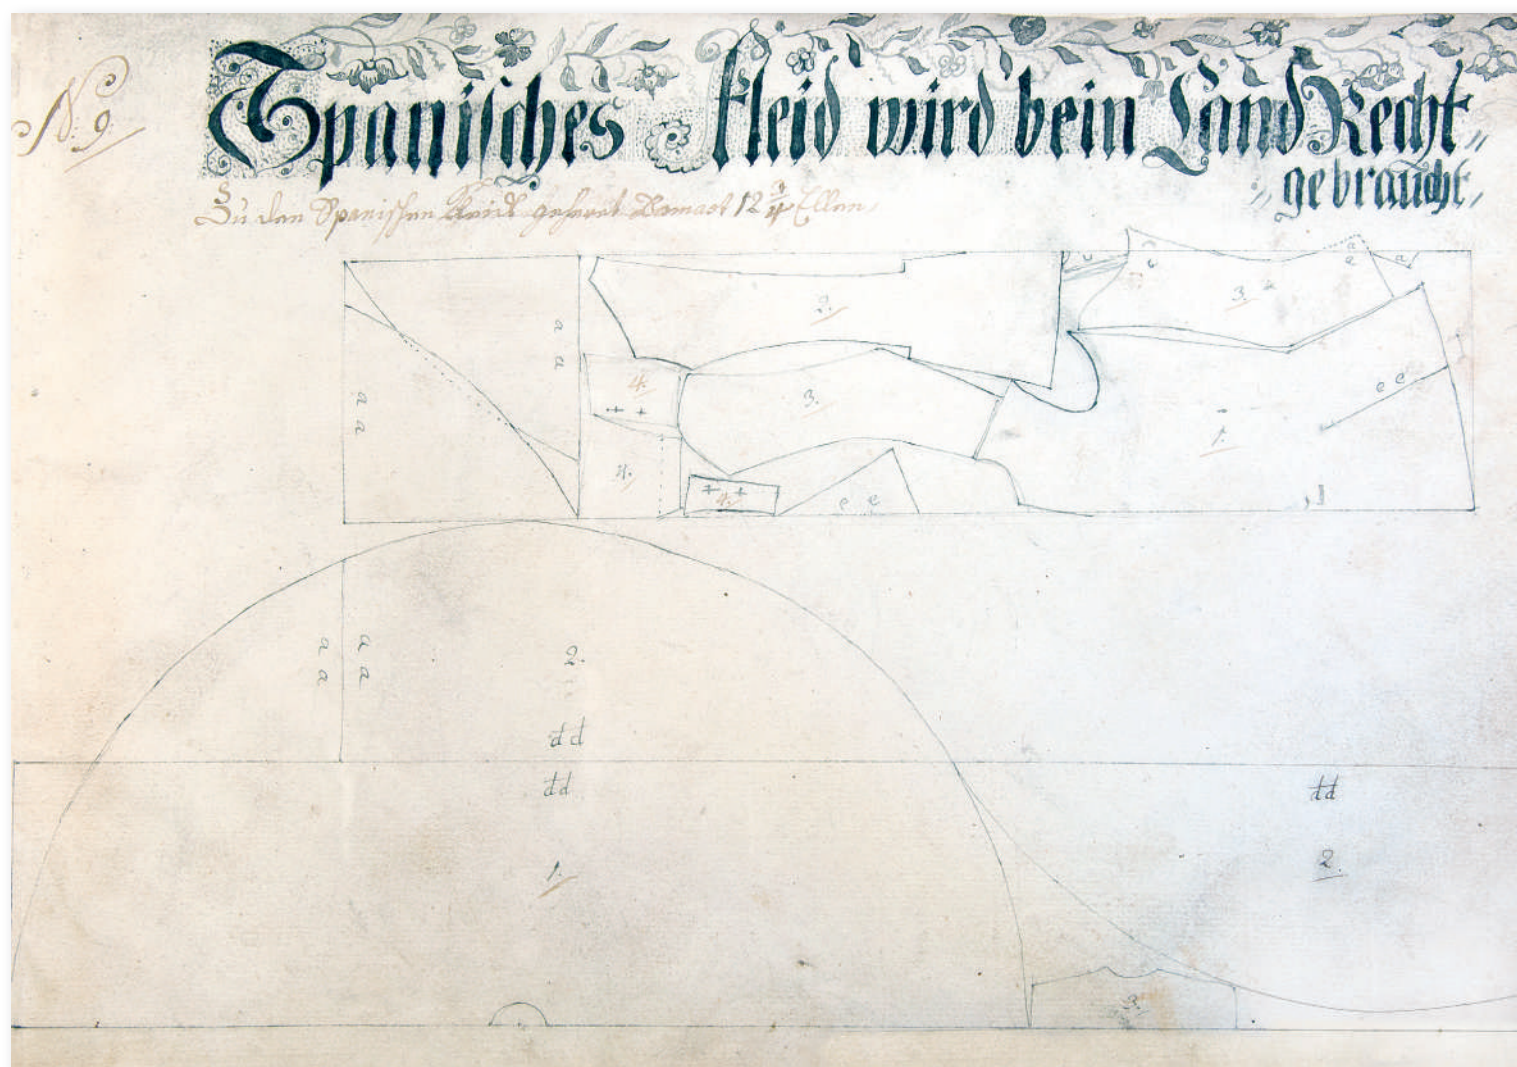 N. 9.
Spanisches Kleid wird bein Land Recht
gebraucht,
Zu den Spanischen Kleidt geheret Damast 12 3/4 Ellen,
a
a
a
a
2.
3.
a
4.
3.
e e
1.
4.
4.
e e
a
a
a
a
2.
dd
dd
dd
1.
2.
3.